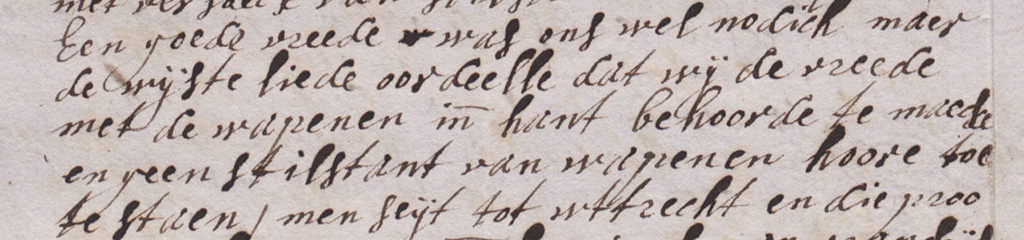 Een goede vreede was ons wel nodich maer
de wijste liede oordeelle dat wij de vreede
met de wapenen in hant behoorde te maecke
en geen stilstant van wapenen hoore toe
te staen / men seijt tot wttrecht en die proo